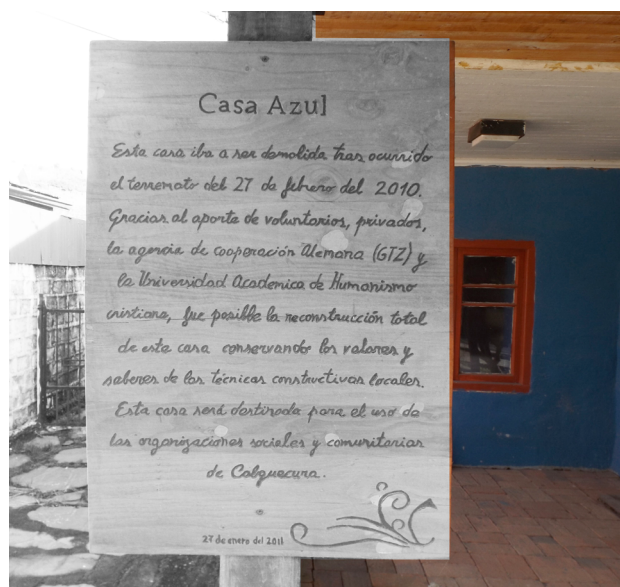 Casa Azul
Esta casa iba a ser demolida tras ocurrido
el terremoto del 27 de febrero del 2010.
Gracias al aporte de voluntarios, privados,
la agencia de cooperación Alemana (GTZ) y
la Universidad Academica de Humanismo
cristiano, fue posible la reconstrucción total
de esta casa conservando los valores y
saberes de las técnicas constructivas locales.
Esta casa será destinada para el uso de
las organizaciones sociales y comunitarias
de Cobquecura.
27 de enero del 2011